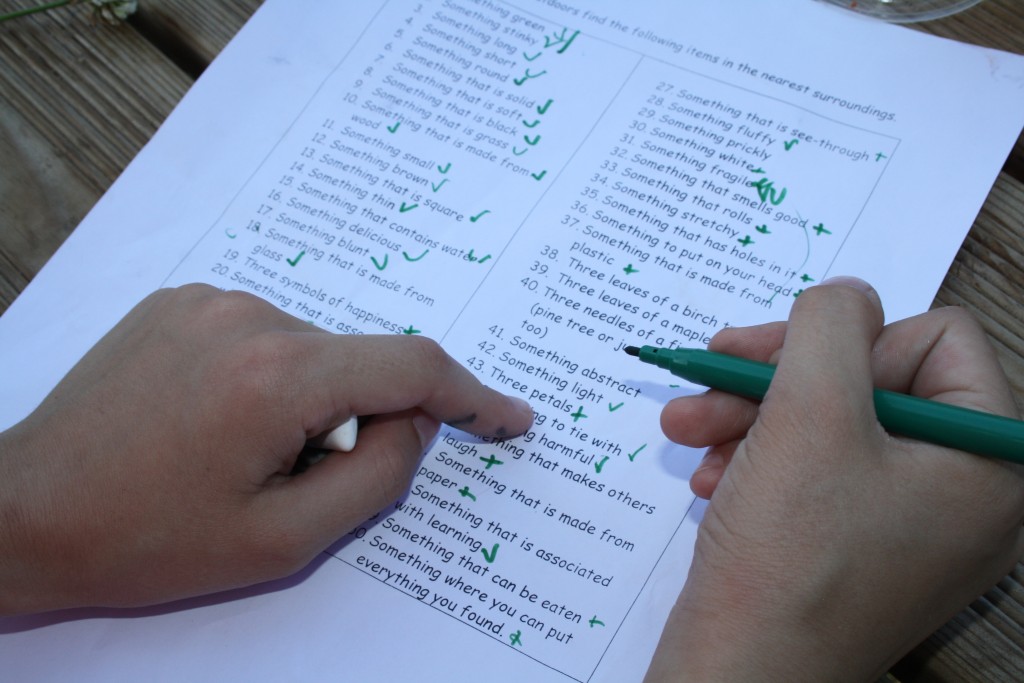 doors find the following items in the nearest surroundings.
something green
3. Something stinky
4. Something long
5. Something short
6. Something round
7. Something that is solid
8. Something that is soft
9. Something that is black
10. Something that is grass
Something that is made from
wood
11. Something small
12. Something brown
13. Something that is square
14. Something thin
15. Something that contains water
16. Something delicious
17. Something blunt
18. Something that is made from
glass
19. Three symbols of happiness
20. Something that is
27. Something that is see-through
28. Something fluffy
29. Something prickly
30. Something white
31. Something fragile
32. Something that smells good
33. Something that rolls
34. Something stretchy
35. Something that has holes in it
36. Something to put on your head
37. Something that is made from
plastic
38. Three leaves of a birch
39. Three leaves of a maple
40. Three needles of a
(pine tree or
too)
41. Something abstract
42. Something light
43. Three petals
to tie with
harmful
something that makes others
laugh
Something that is made from
paper
Something that is associated
with learning
Something that can be eaten
50. Something where you can put
everything you found.